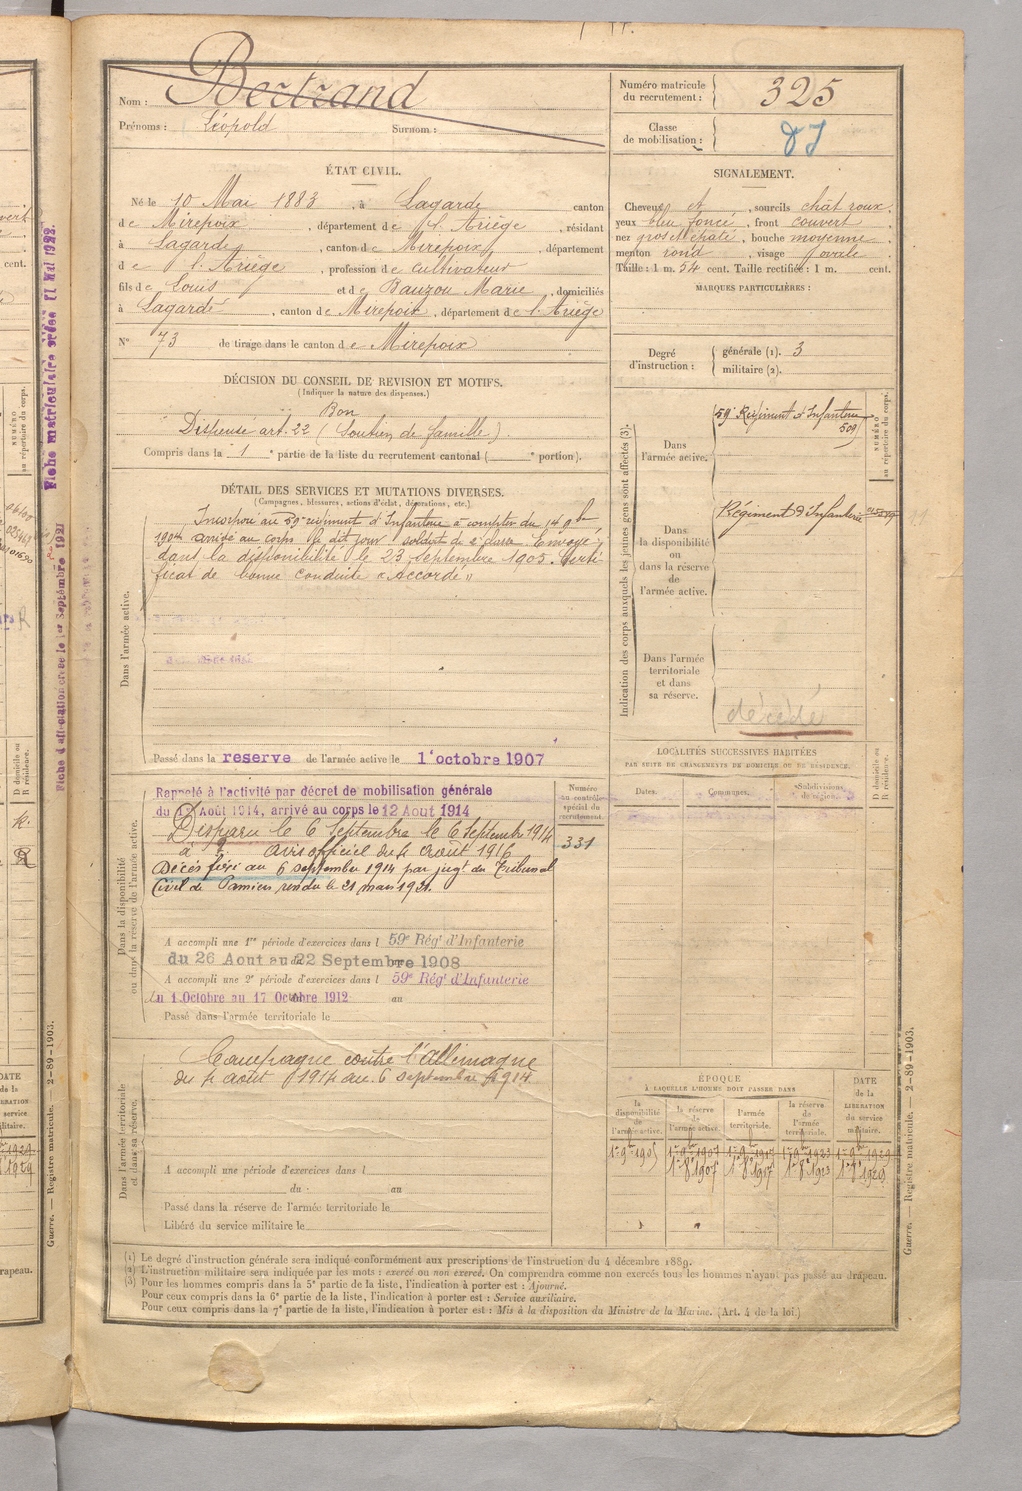 Nom : Bertrand
Prénoms : Léopold Surnom :
Numéro matricule du recrutement : 325
Classe de mobilisation :
ÉTAT CIVIL.
Né le 10 Mai 1883, à Lagarde canton
de Mirepoix, département de l'Ariège, résidant
à Lagarde, canton de Mirepoix, département
de l'Ariège, profession de cultivateur
fils de Louis et de Bauzou Marie, domiciliés
à Lagarde, canton de Mirepoix, département de l'Ariège
N° 73 de tirage dans le canton de Mirepoix
SIGNALEMENT.
Cheveux et, sourcils chat roux,
yeux bleu foncé, front couvert,
nez gros et épaté, bouche moyenne,
menton rond, visage ovale.
Taille : 1 m. 54 cent. Taille rectifiée : 1 m. cent.
MARQUES PARTICULIÈRES :
Degré d'instruction : générale (1). 3
militaire (2).
DÉCISION DU CONSEIL DE REVISION ET MOTIFS.
(Indiquer la nature des dispenses.)
Bon
Dispensé art. 22 (Soutien de famille).
Compris dans la 1e partie de la liste du recrutement cantonal ( e portion).
DÉTAIL DES SERVICES ET MUTATIONS DIVERSES.
(Campagnes, blessures, actions d'éclat, décorations, etc.)
Incorporé au 59e régiment d'Infanterie à compter du 14 9bre
1904 arrivé au corps le dit jour soldat de 2e classe. Envoyé
dans la disponibilité le 23 septembre 1905. Certi-
ficat de bonne conduite « Accordé »
Dans l'armée active.
Passé dans la reserve de l'armée active le 1er octobre 1907
Indication des corps auxquels les jeunes gens sont affectés (3).
NUMÉRO au répertoire du corps.
Dans l'armée active. 59e Régiment d'Infanterie
509
Dans la disponibilité ou dans la réserve de l'armée active. Régiment d'Infanterie
Dans l'armée territoriale et dans sa réserve.
décédé
LOCALITÉS SUCCESSIVES HABITÉES
PAR SUITE DE CHANGEMENTS DE DOMICILE OU DE RÉSIDENCE.
Dates. Communes. Subdivisions de région. D domicile ou R résidence.
Dans la disponibilité ou dans la réserve de l'armée active.
Rappelé à l'activité par décret de mobilisation générale
du 1er Août 1914, arrivé au corps le 12 Aout 1914
Disparu le 6 Septembre le 6 Septembre 1914
à ? avis officiel du 4 Août 1916
Décès fixé au 6 septembre 1914 par jugt du Tribunal
Civil de Pamiers rendu le 21 mars 1921.
Numéro au contrôle spécial du recrutement.
331
A accompli une 1re période d'exercices dans l 59e Régt d'Infanterie
du 26 Aout au 22 Septembre 1908
A accompli une 2e période d'exercices dans l 59e Régt d'Infanterie
du 1 Octobre au 17 Octobre 1912 au
Passé dans l'armée territoriale le
Dans l'armée territoriale et dans sa réserve.
Campagne contre l'Allemagne
du 4 août 1914 au 6 septembre 1914
A accompli une période d'exercices dans l
du au
Passé dans la réserve de l'armée territoriale le
Libéré du service militaire le
ÉPOQUE
A LAQUELLE L'HOMME DOIT PASSER DANS
la disponibilité de l'armée active. la réserve de l'armée active. l'armée territoriale. la réserve de l'armée territoriale. DATE de la LIBÉRATION du service militaire.
1er 9bre 1905 1er 9bre 1907 1er 9bre 1917 1er 9bre 1923 1er 9bre 1929
1er 8bre 1907 1er 8bre 1917 1er 8bre 1923 1er 8bre 1929
(1) Le degré d'instruction générale sera indiqué conformément aux prescriptions de l'instruction du 4 décembre 1889.
(2) L'instruction militaire sera indiquée par les mots : exercé ou non exercé. On comprendra comme non exercés tous les hommes n'ayant pas passé au drapeau.
(3) Pour les hommes compris dans la 5e partie de la liste, l'indication à porter est : Ajourné.
Pour ceux compris dans la 6e partie de la liste, l'indication à porter est : Service auxiliaire.
Pour ceux compris dans la 7e partie de la liste, l'indication à porter est : Mis à la disposition du Ministre de la Marine. (Art. 4 de la loi.)
Guerre. — Registre matricule. — 2-89-1903.
Fiche matriculaire créée 11 Mai 1922.
Fiche d'affectation créée le 1er Septembre 1921
Guerre. — Registre matricule. — 2-89-1903.